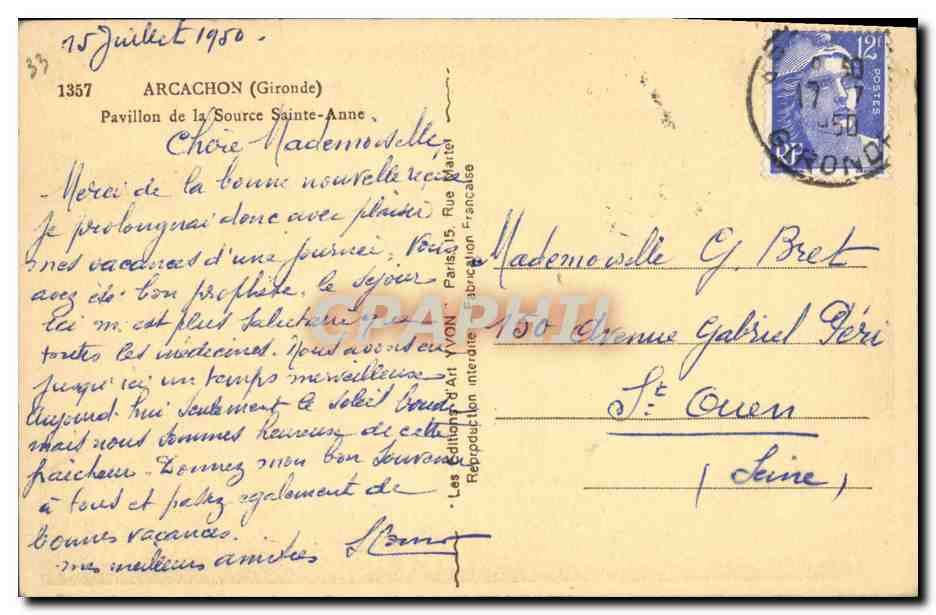 15 Juillet 1950.
33
1357 ARCACHON (Gironde)
Pavillon de la Source Sainte-Anne
Chère Mademoiselle,
Merci de la bonne nouvelle reçue
Je prolongerai donc avec plaisir
mes vacances d'une journée. Vous
avez été bon prophète, le séjour
ici m'est plus salutaire que
toutes les médecines. Nous avons eu
jusqu'ici un temps merveilleux
aujourd'hui seulement le soleil boude
mais nous sommes heureux de cette
fraîcheur. Donnez mon bon souvenir
à tous et passez également de
bonnes vacances.
mes meilleurs amitiés
- Les Editions d'Art YVON - Paris, 15, Rue Martel
Reproduction interdite Fabrication Française
CPAPHIL
12F
POSTES
RF
17 - 7
1950
GIRONDE
Mademoiselle G. Bret
150 Avenue Gabriel Péri
St Ouen
(Seine)